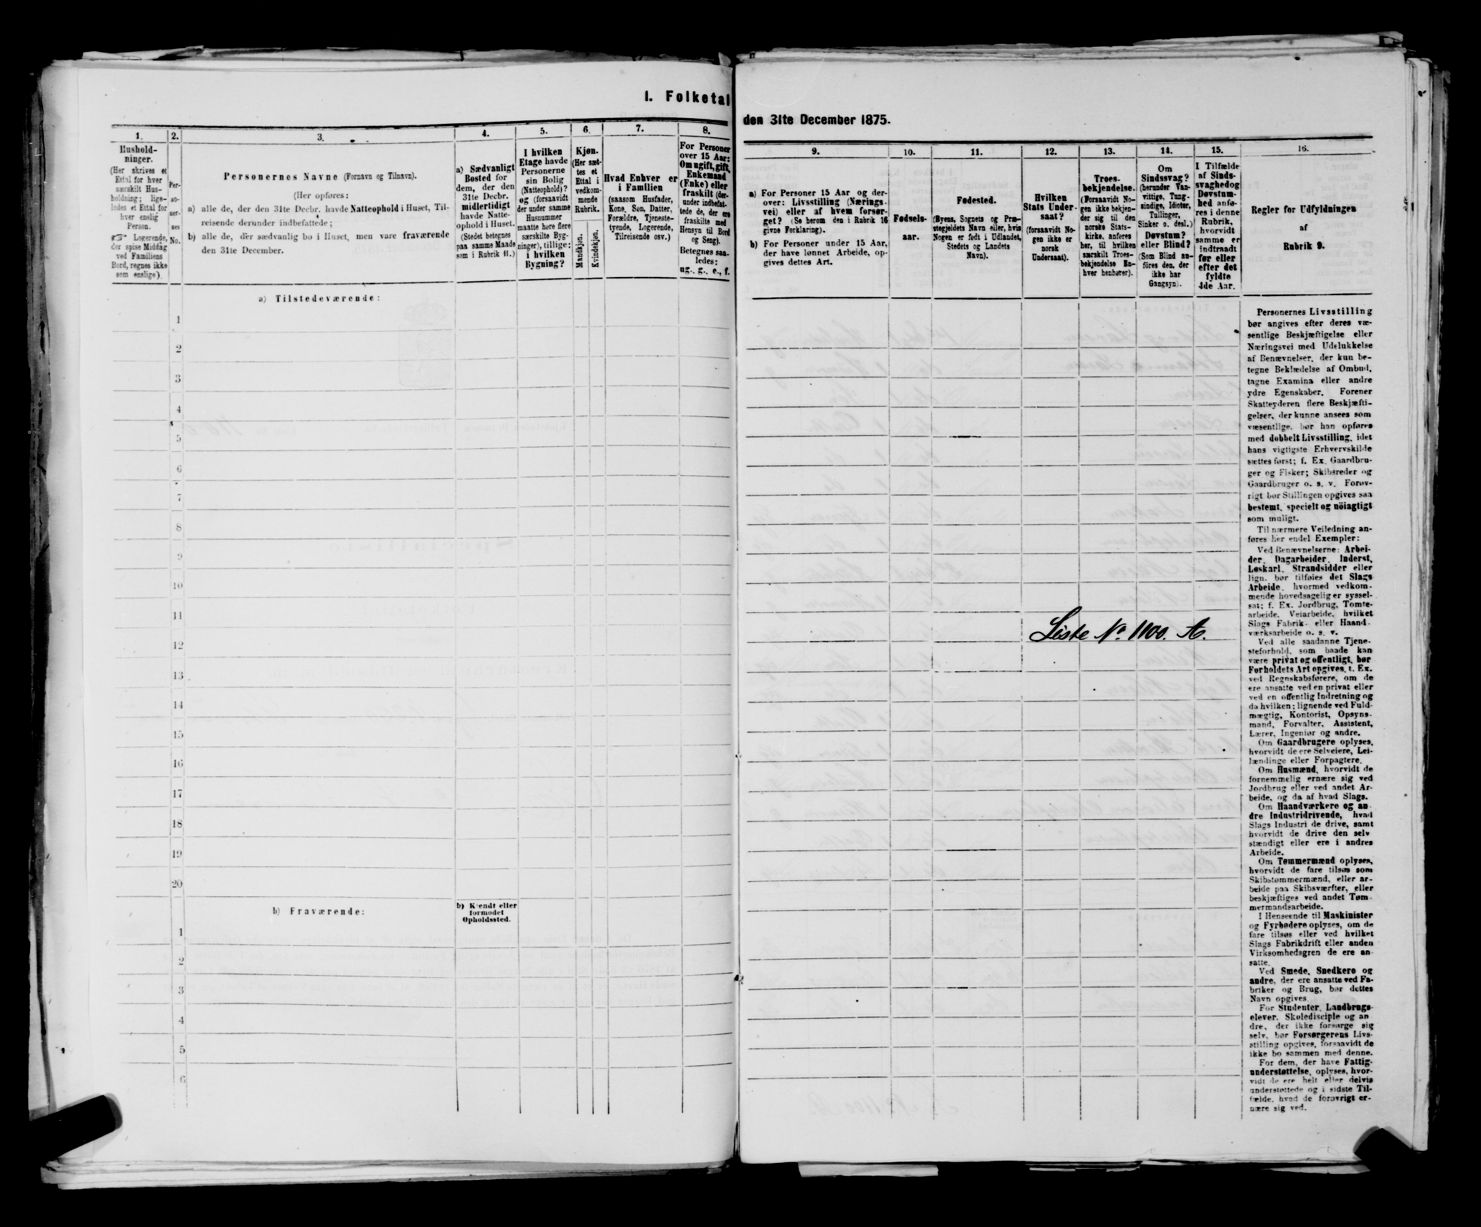 I. Folketal
1.
2.
3.
4.
5.
6.
7.
8.
Hushold-
ninger.
(Her skrives et
Ettal for hver
særskilt Hus-
holdning; lige-
ledes et Ettal for
hver enslig
Person.
☞ Logerende,
der spise Middag
ved Familiens
Bord, regnes ikke
som enslige).
Per-
so-
ner-
nes
No.
Personernes Navne (Fornavn og Tilnavn).
(Her opføres:
a) alle de, der den 31te Decbr. havde Natteophold i Huset, Til-
reisende derunder indbefattede;
b) alle de, der sædvanlig bo i Huset, men vare fraværende
den 31te December.
a) Sædvanligt
Bosted for
dem, der den
31te Decbr.
midlertidigt
havde Natte-
ophold i Huset.
(Stedet betegnes
paa samme Maade
som i Rubrik 11.)
I hvilken
Etage havde
Personerne
sin Bolig
(Natteophold)?
og (forsaavidt
der under samme
Husnummer
maatte høre flere
særskilte Byg-
ninger), tillige:
i hvilken
Bygning?
Kjøn.
(Her sæt-
tes et
Ettal i
vedkom-
mende
Rubrik.
Mandkjøn.
Kvindekjøn.
Hvad Enhver er
i Familien
(saasom Husfader,
Kone, Søn, Datter,
Forældre, Tjeneste-
tyende, Logerende,
Tilreisende osv.)
For Personer
over 15 Aar:
Om ugift, gift,
Enkemand
(Enke) eller
fraskilt (der-
under indbefat-
tede de, der ere
fraskilte med
Hensyn til Bord
og Seng).
Betegnes saa-
ledes:
ug., g., e., f.
a) Tilstedeværende:
1
2
3
4
5
6
7
8
9
10
11
12
13
14
15
16
17
18
19
20
b) Fraværende:
b) Kjendt eller
formodet
Opholdssted.
1
2
3
4
5
6
den 31te December 1875.
9.
10.
11.
12.
13.
14.
15.
16.
a) For Personer 15 Aar og der-
over: Livsstilling (Nærings-
vei) eller af hvem forsør-
get? (Se herom den i Rubrik 16
givne Forklaring).
b) For Personer under 15 Aar,
der have lønnet Arbeide, op-
gives dettes Art.
Fødsels-
aar.
Fødested.
(Byens, Sognets og Præ-
stegjeldets Navn eller, hvis
Nogen er født i Udlandet,
Stedets og Landets
Navn).
Hvilken
Stats Under-
saat?
(forsaavidt No-
gen ikke er
norsk
Undersaat).
Troes-
bekjendelse.
(Forsaavidt No-
gen ikke bekjen-
der sig til den
norske Stats-
kirke, anføres
her, til hvilken
særskilt Troes-
bekjendelse En-
hver henhører).
Om
Sindssvag?
(herunder Van-
vittige, Idioter,
Tullinger,
Sinker o. desl.)
Døvstum?
eller Blind?
(Som Blind an-
føres den, der
ikke har
Gangsyn).
I Tilfælde
af Sinds-
svaghed og
Døvstum-
hed anfø-
res i denne
Rubrik,
hvorvidt
samme er
indtraadt
før eller
efter det
fyldte
4de Aar.
Regler for Udfyldningen
af
Rubrik 9.
Personernes Livsstilling
bør angives efter deres væ-
sentlige Beskjæftigelse eller
Næringsvei med Udelukkelse
af Benævnelser, der kun be-
tegne Beklædelse af Ombud,
tagne Examina eller andre
ydre Egenskaber. Forener
Skatteyderen flere Beskjæfti-
gelser, der kunne ansees som
væsentlige, bør han opføres
med dobbelt Livsstilling, idet
hans vigtigste Erhvervskilde
sættes først; f. Ex. Gaardbru-
ger og Fisker; Skibsreder og
Gaardbruger o. s. v. Forøv-
rigt bør Stillingen opgives saa
bestemt, specielt og nöiagtigt
som muligt.
Til nærmere Veiledning an-
føres her endel Exempler:
Ved Benævnelserne: Arbei-
der, Dagarbeider, Inderst,
Løskarl, Strandsidder eller
lign. bør tilføies det Slags
Arbeide, hvormed vedkom-
mende hovedsagelig er syssel-
sat; f. Ex. Jordbrug, Tomte-
arbeide, Veiarbeide, hvilket
Slags Fabrik- eller Haand-
værksarbeide o. s. v.
Ved alle saadanne Tjene-
steforhold, som baade kan
være privat og offentligt, bør
Forholdets Art opgives, t. Ex.
ved Regnskabsførere, om de
ere ansatte ved en privat eller
ved en offentlig Indretning og
da hvilken; lignende ved Fuld-
mægtig, Kontorist, Opsyns-
mand, Forvalter, Assistent,
Lærer, Ingeniør og andre.
Om Gaardbrugere oplyses,
hvorvidt de ere Selveiere, Lei-
lændinge eller Forpagtere.
Om Husmænd, hvorvidt de
fornemmelig ernære sig ved
Jordbrug eller ved andet Ar-
beide, og da af hvad Slags.
Om Haandværkere og an-
dre Industridrivende, hvad
Slags Industri de drive, samt
hvorvidt de drive den selv-
stændigt eller ere i andres
Arbeide.
Om Tømmermænd oplyses,
hvorvidt de fare tilsøs som
Skibstømmermænd, eller ar-
beide paa Skibsværfter, eller
beskjæftiges ved andet Tøm-
mermandsarbeide.
I Henseende til Maskinister
og Fyrbødere oplyses, om de
fare tilsøs eller ved hvilket
Slags Fabrikdrift eller anden
Virksomhedsgren de ere an-
satte.
Ved Smede, Snedkere og
andre, der ere ansatte ved Fa-
briker og Brug, bør dettes
Navn opgives.
For Studenter, Landbrugs-
elever, Skoledisciple og an-
dre, der ikke forsørge sig
selv, bør Forsørgerens Livs-
stilling opgives, forsaavidt de
ikke bo sammen med denne.
For dem, der have Fattig-
understøttelse, oplyses, hvor-
vidt de ere helt eller delvis
understøttede og i sidste Til-
fælde, hvad de forøvrigt er-
nære sig ved.
Liste No. 1100. A.